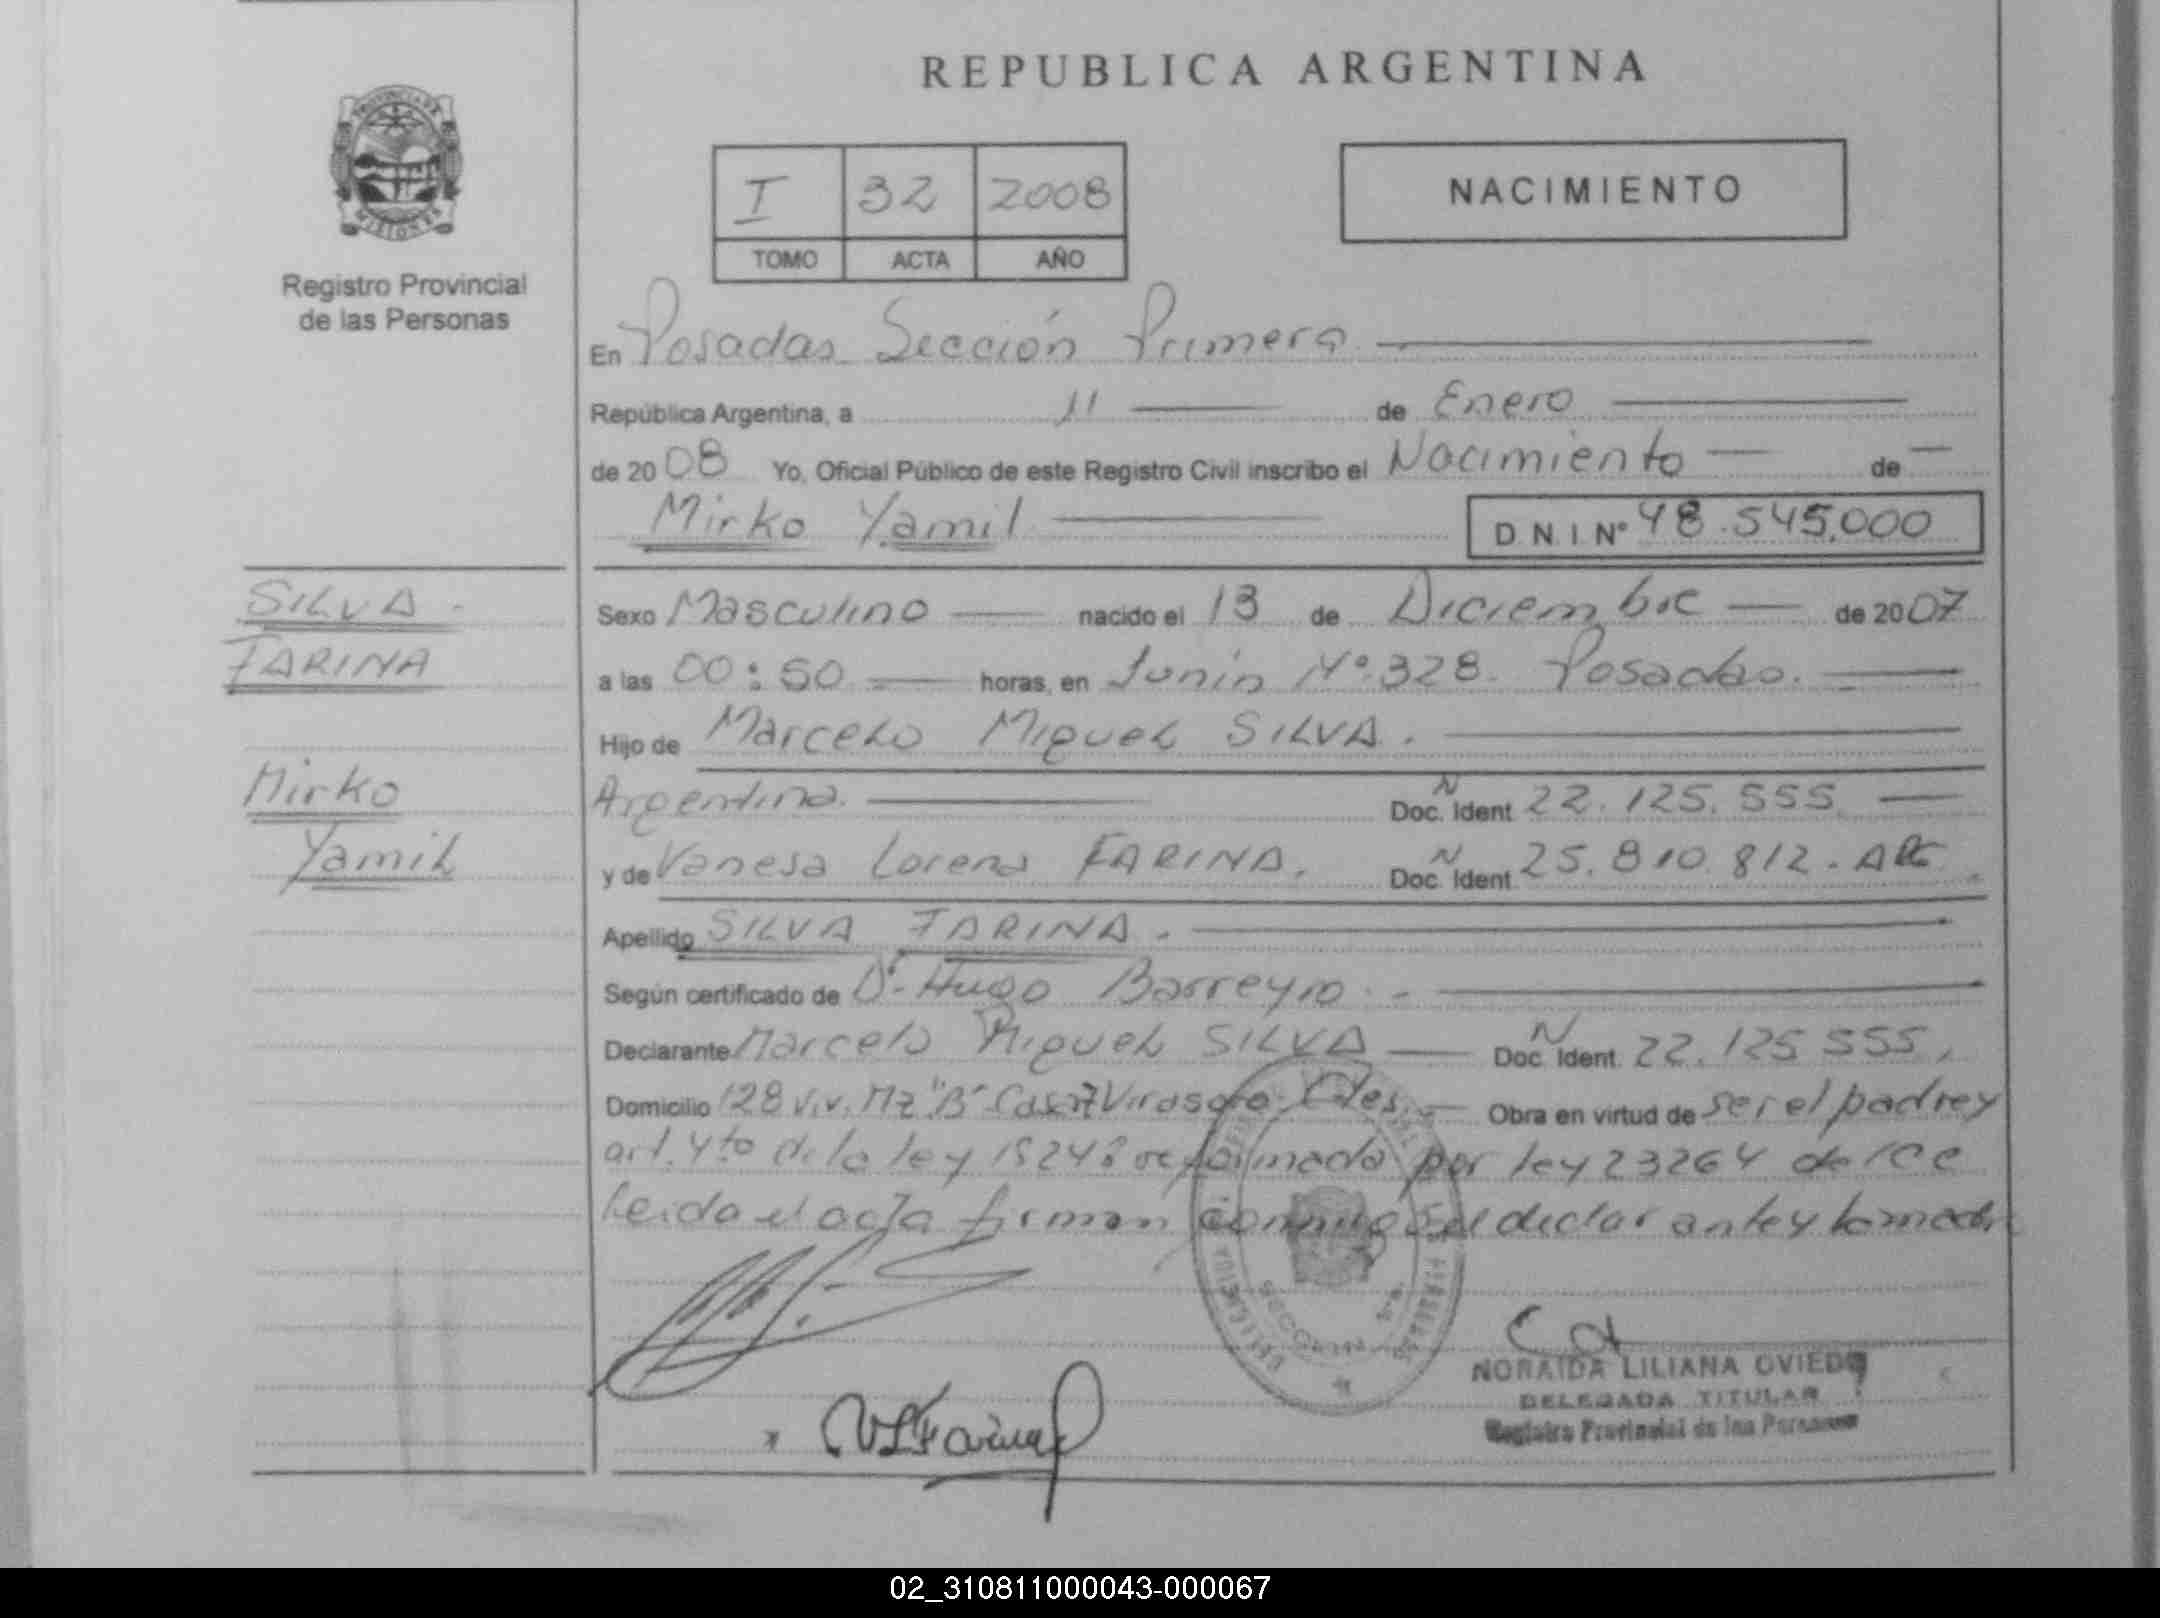 REPUBLICA ARGENTINA
PROVINCIA DE
MISIONES
Registro Provincial
de las Personas
I 32 2008
TOMO ACTA AÑO
NACIMIENTO
En Posadas Sección Primera
República Argentina, a 11 de Enero
de 2008 Yo, Oficial Público de este Registro Civil inscribo el Nacimiento de
Mirko Yamil D N I Nº 48.545.000
SILVA
FARINA
Mirko
Yamil
Sexo Masculino nacido el 13 de Diciembre de 2007
a las 00:50 horas, en Junín Nº 328. Posadas.
Hijo de Marcelo Miguel SILVA.
Argentina. N Doc. Ident 22.125.555
y de Vanesa Lorena FARINA. N Doc. Ident 25.810.812.
Apellido SILVA FARINA.
Según certificado de Dr. Hugo Barreyro.
Declarante Marcelo Miguel SILVA N Doc. Ident. 22.125 555,
Domicilio 128 Viv. Mz "B" Casa 7 Virasoro Ctes. Obra en virtud de ser el padre y
art. 4to de la ley 18248 reformada por ley 23264
Leida el acta firman conmigo el declarante y la madre
VLFarina
NORAIDA LILIANA OVIEDO
DELEGADA TITULAR
Registro Provincial de las Personas
02_310811000043-000067